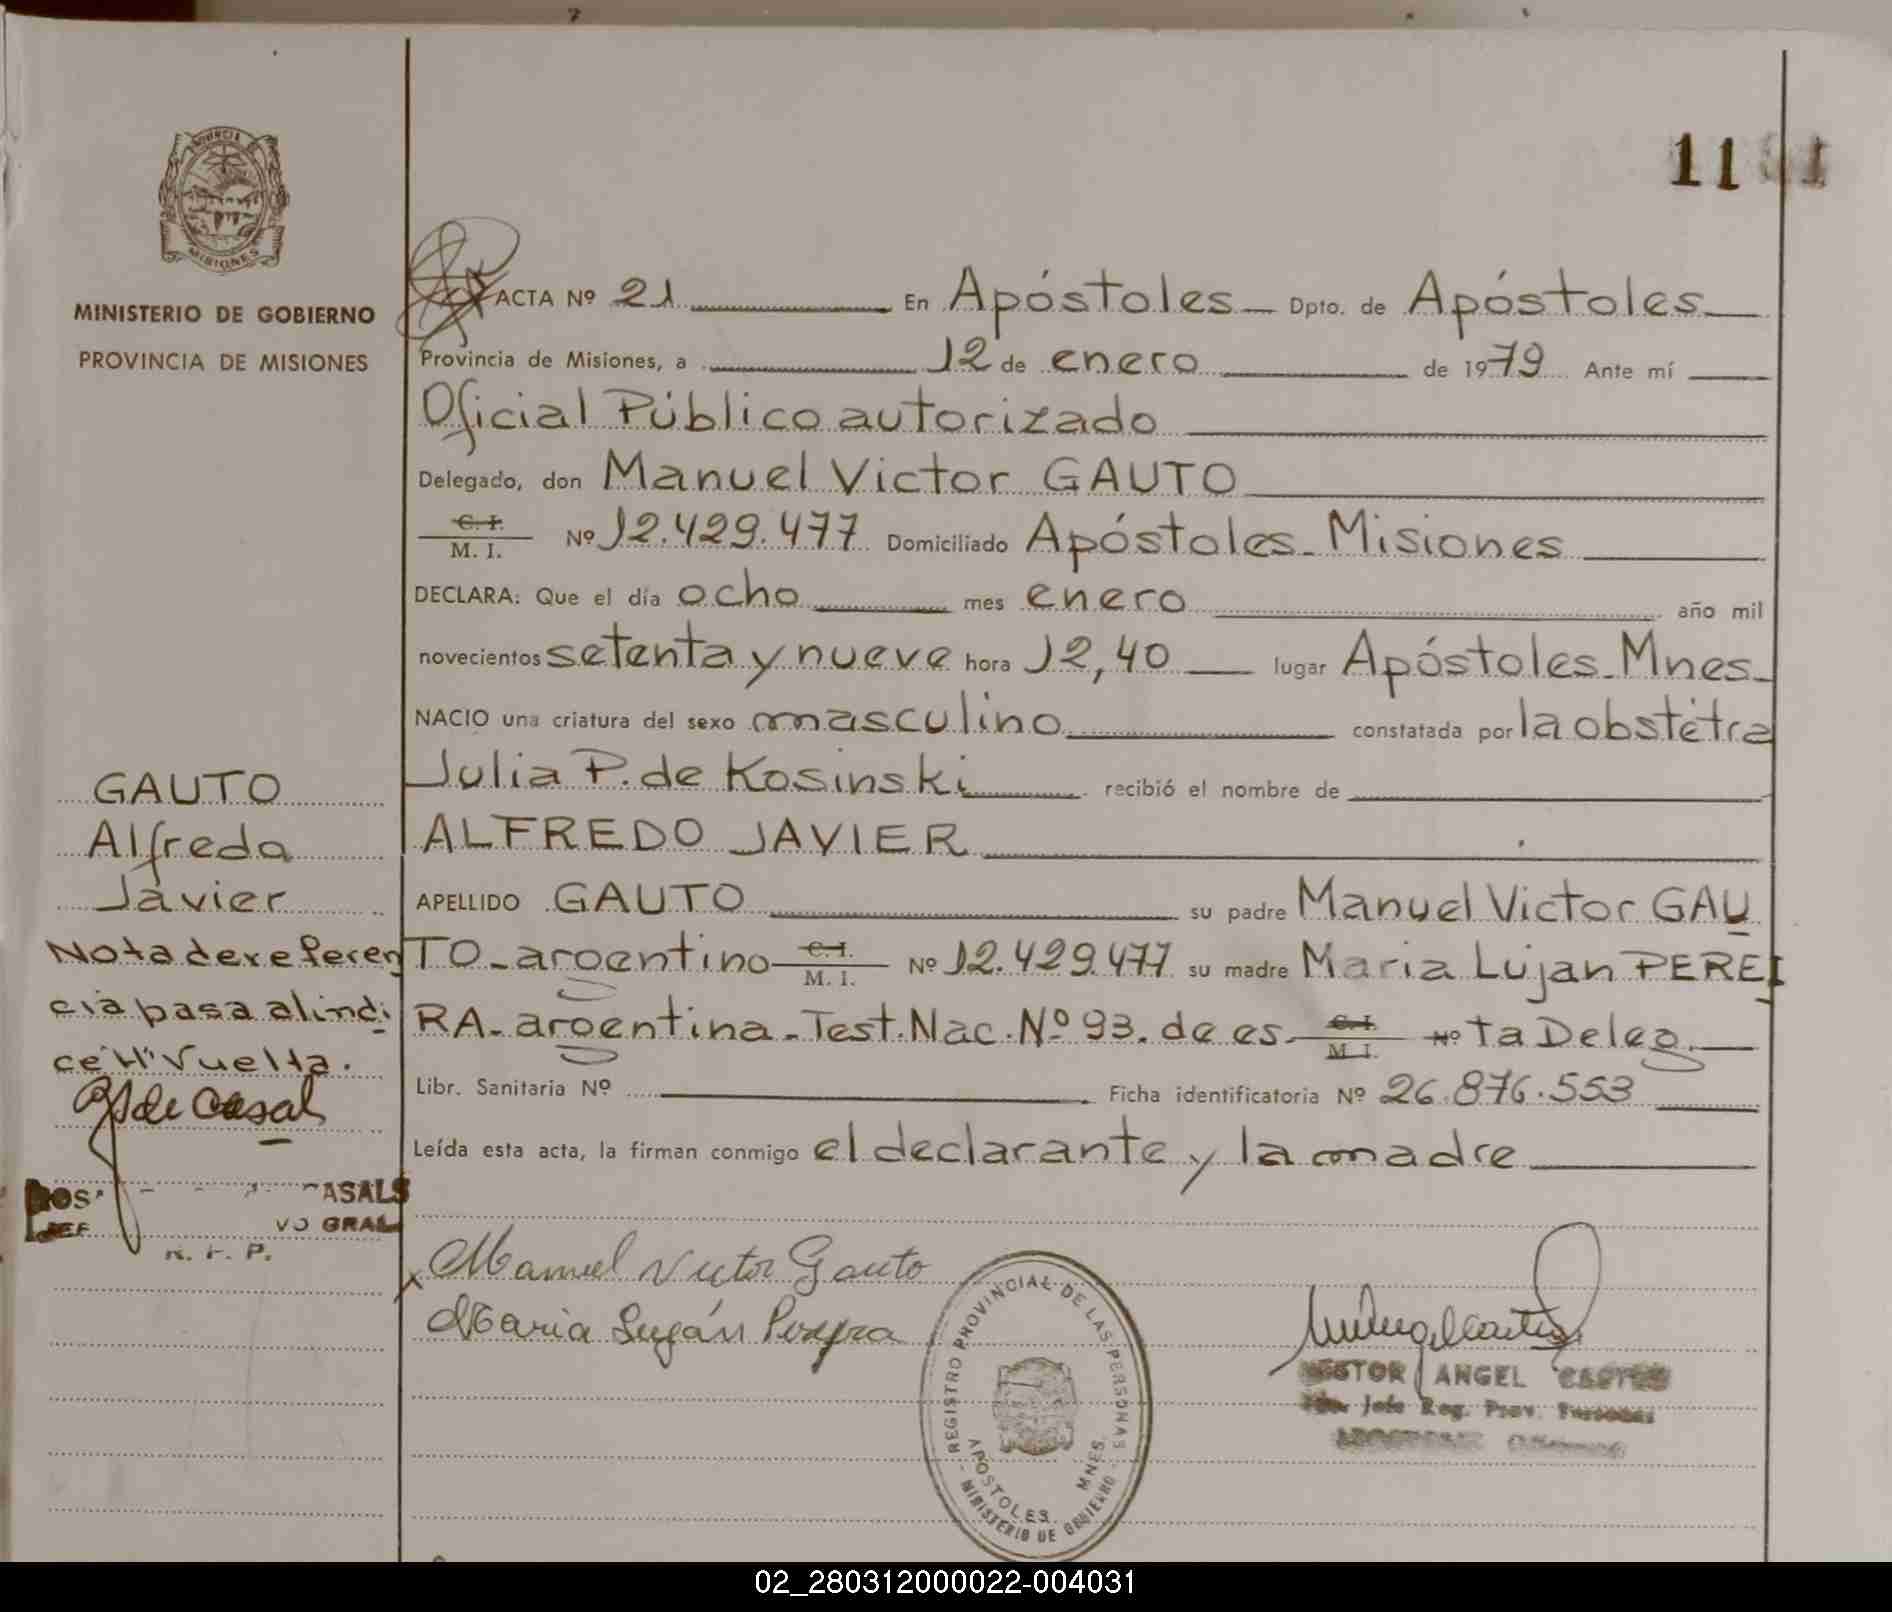 11
PROVINCIA
MISIONES
MINISTERIO DE GOBIERNO
PROVINCIA DE MISIONES
ACTA Nº 21 En Apóstoles Dpto. de Apóstoles
Provincia de Misiones, a 12 de enero de 1979 Ante mí
Oficial Público autorizado
Delegado, don Manuel Victor GAUTO
C. I.
M. I. Nº 12.429.477 Domiciliado Apóstoles - Misiones
DECLARA: Que el día ocho mes enero año mil
novecientos setenta y nueve hora 12,40 lugar Apóstoles - Mnes.
NACIO una criatura del sexo masculino constatada por la obstétra
Julia P. de Kosinski recibió el nombre de
ALFREDO JAVIER
APELLIDO GAUTO su padre Manuel Victor GAU
TO - argentino C. I. M. I. Nº 12.429.477 su madre Maria Lujan PEREI
RA - argentina - Test. Nac. Nº 93. de es- C. I. M. I. Nº ta Deleg.
Libr. Sanitaria Nº Ficha identificatoria Nº 26.876.553
Leída esta acta, la firman conmigo el declarante y la madre
GAUTO
Alfredo
Javier
Nota de referen
cia pasa al indi
ce "H" Vuelta.
de Casal
ASALS
GRAL
R. P. P.
Manuel Victor Gauto
Maria Luján Pereyra
REGISTRO PROVINCIAL DE LAS PERSONAS
APOSTOLES MNES.
- MINISTERIO DE GOBIERNO -
NESTOR ANGEL
Jefe Reg. Prov. Personas
02_280312000022-004031